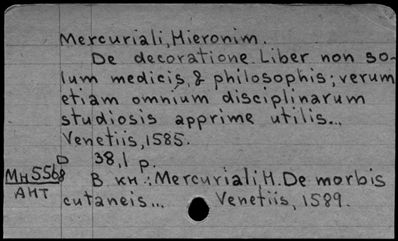 Mercuriali, Hieronim.
De decoratione Liber non so-
lum medicis, & philosophis; verum
etiam omnium disciplinarum
studiosis apprime utilis...
Venetiis, 1585.
D 38,1 p.
Мн5568 В кн.: Mercuriali H. De morbis
АНТ
cutaneis... Venetiis, 1589.